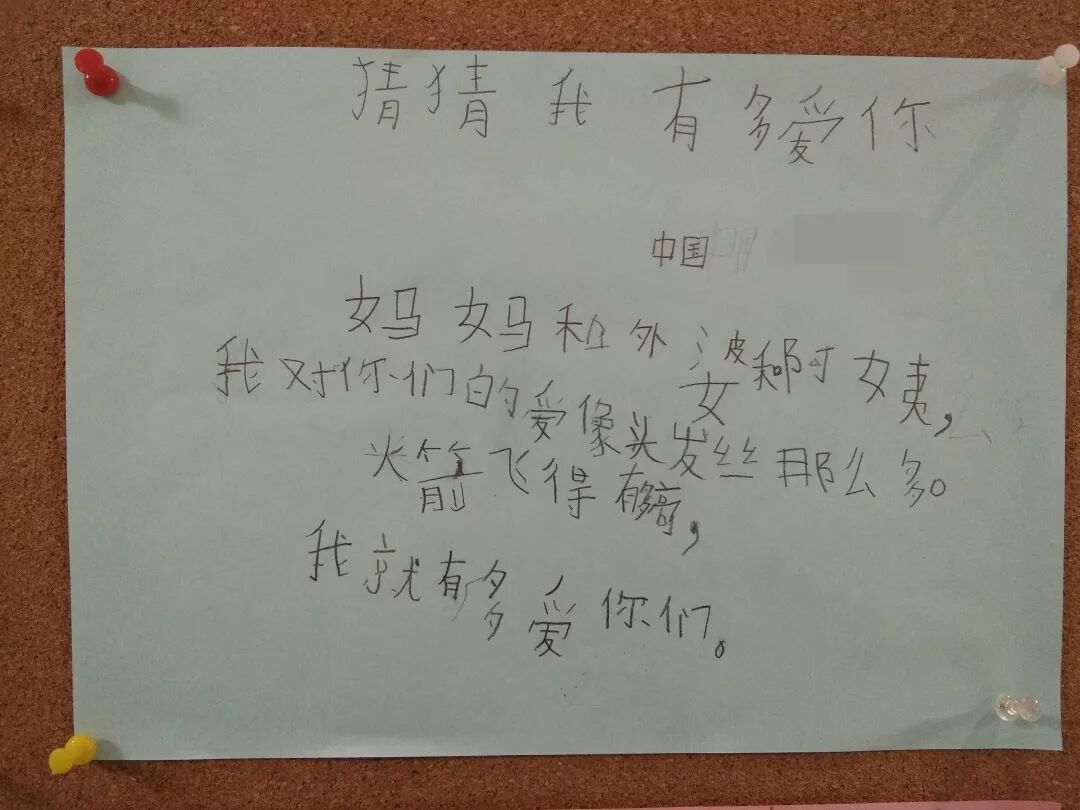 猜猜我有多爱你
中国
妈妈和外婆和阿姨,
我对你们的爱像头发丝那么多。
火箭飞得有多高,
我就有多爱你们。